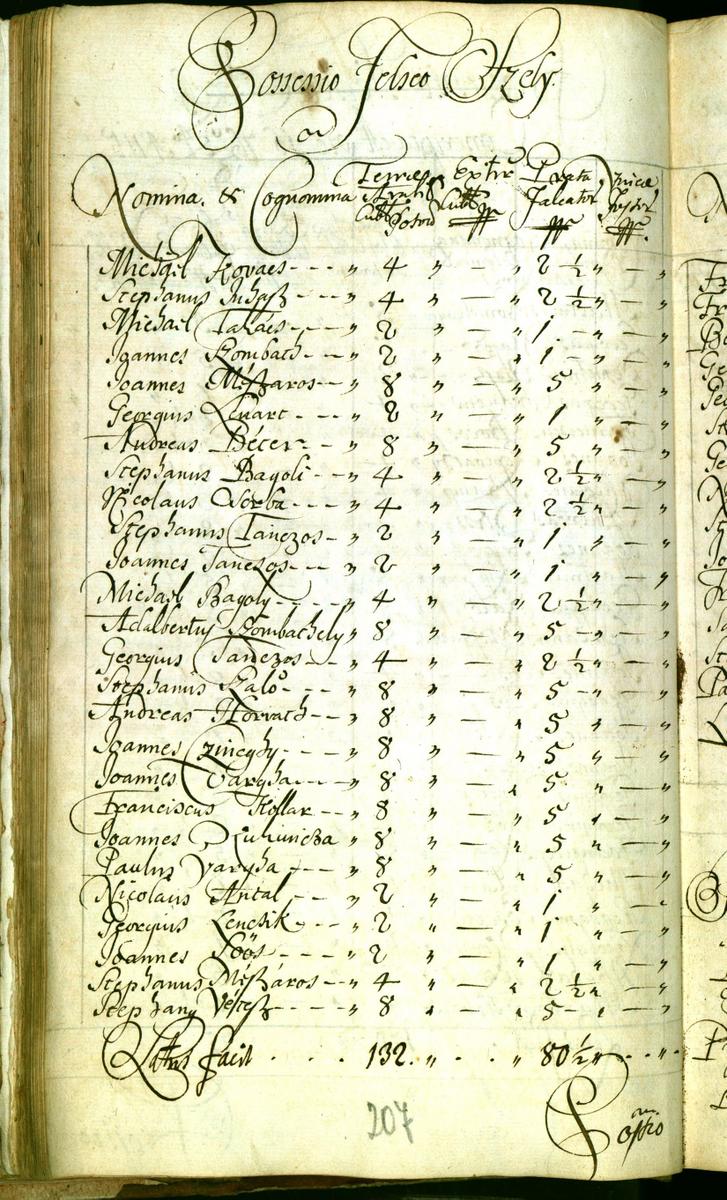 Possessio Felseo Szely
Nomina. & Cognomina Terres Extir Prata
Cub Cub Falcator
Michael Kovacs - - - " 4 " — " 2 ½ " — "
Stephanus Juhasz - - " 4 " — " 2 ½ " — "
Michael Takács - - - " 2 " — " 1 - " — "
Joannes Szombath - - " 2 " — " 1 - " — "
Joannes Mészaros - - " 8 " — " 5 " — "
Georgius Lénart - - " 2 " — " 1 " — "
Andreas - " 8 " — " 5 " — "
Stephanus Bagoli - - " 4 " — " 2 ½ " — "
Nicolaus Csorba - - " 4 " — " 2 ½ " — "
Stephanus Tanczos - " 2 " — " 1 " — "
Joannes Tanczos - - " 2 " — " 1 " — "
Michael Bagoly - - - - " 4 " — " 2 ½ " — "
Adalbertus Szombathely " 8 " — " 5 - " — "
Georgius Tanczos - - " 4 " — " 2 ½ " — "
Stephanus Szalo - - - " 8 " — " 5 - " — "
Andreas Horvath - - " 8 " — " 5 " — "
Joannes - - - " 8 " — " 5 " — "
Joannes Vargha - - - " 8 " — " 5 " — "
Franciscus Kollar - - " 8 " — " 5 " — "
Joannes " 8 " — " 5 " — "
Paulus Vargha - - - " 8 " — " 5 " — "
Nicolaus Antal - - - " 2 " — " 1 " — "
Georgius Lencsik - - " 2 " — " 1 " — "
Joannes Soós - - - " 2 " — " 1 " — "
Stephanus Mészáros - - " 4 " — " 2 ½ " — "
Stephanus - - " 8 " — " 5 - " — "
Latus facit . . . . 132 . " . . " 80 ½ " . . " .
207